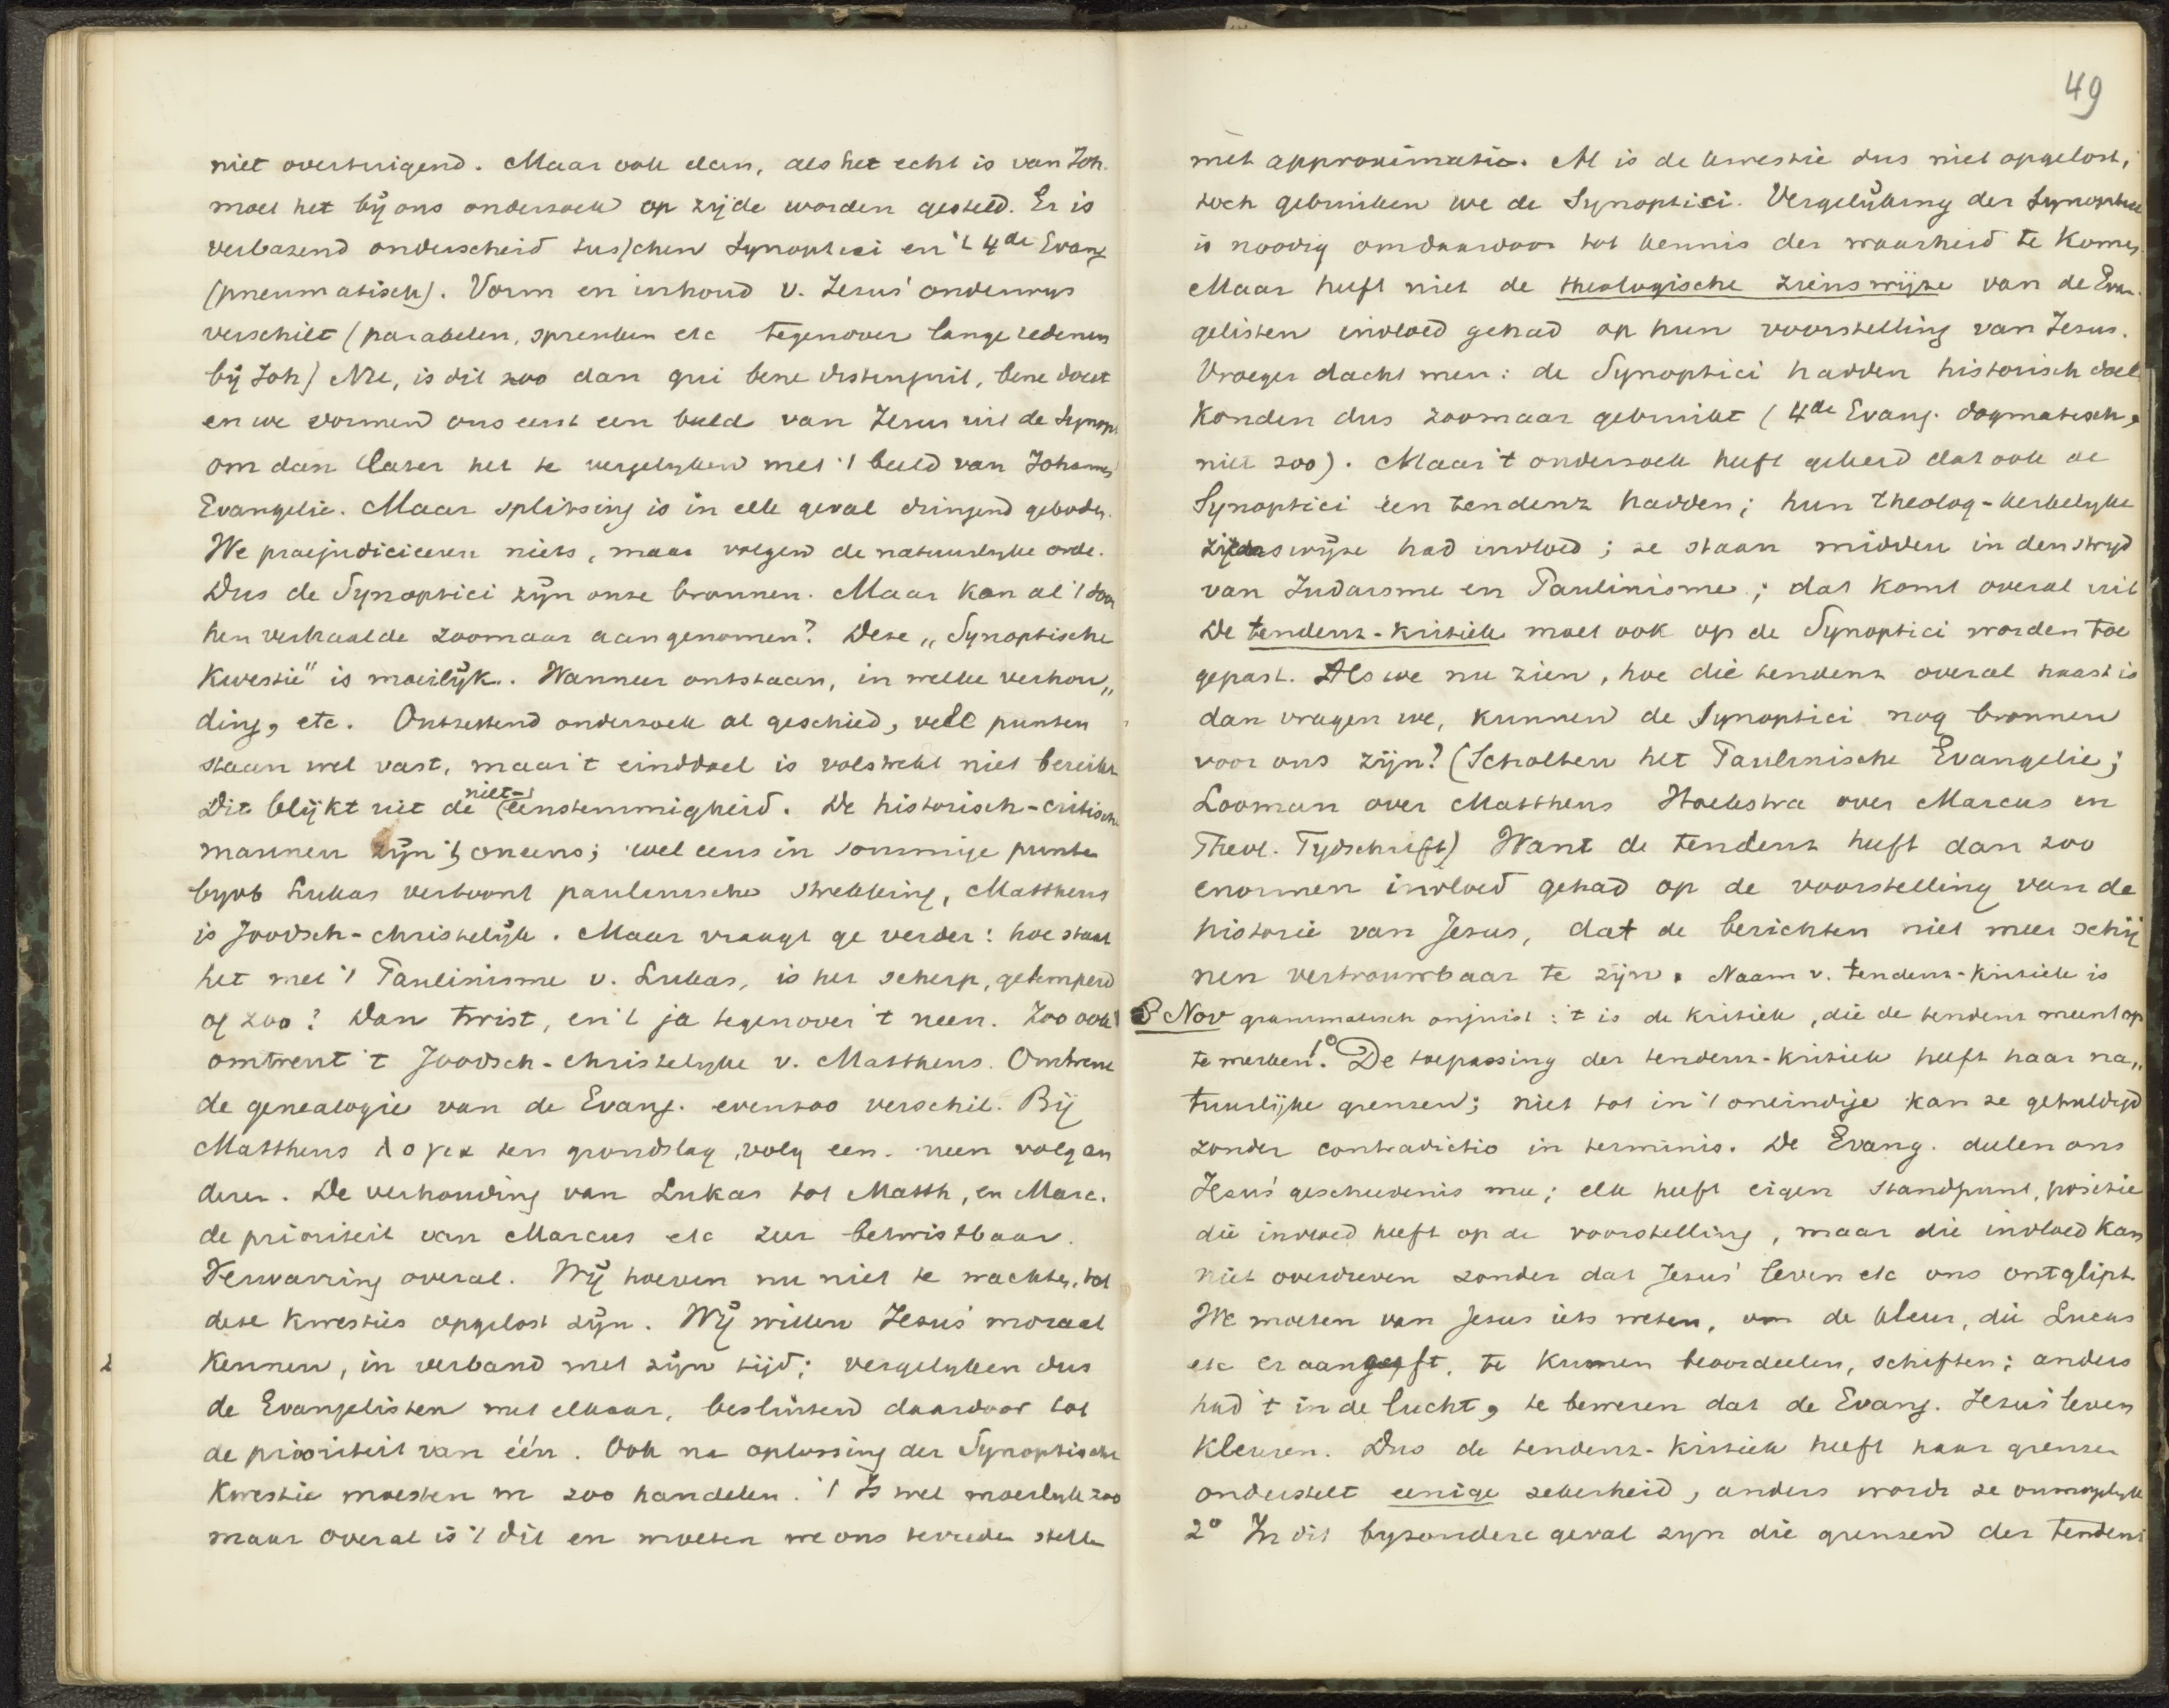 niet overtuigend. Maar ook dan, als het echt is van Joh.
moet het bij ons onderzoek op zijde worden gesteld. Er is
verbazend onderscheid tusschen Synoptici en 't 4de Evang
(pneumatisch). Vorm en inhoud v. Jezus' onderwys
verschilt (parabelen, spreuken etc tegenover lange redenen
bij Joh) Nu, is dit zoo dan qui bene distinguit, bene docet
en we vormen ons eerst een beeld van Jezus uit de Synopt.
om dan later het te vergelyken met 't beeld van Johannes
Evangelie. Maar splitsing is in elk geval dringend geboden.
We praejudiciceren niets, maar volgen de natuurlyke orde.
Dus de Synoptici zijn onze bronnen. Maar kan al 't door
hen verhaalde zoomaar aangenomen? Deze „Synoptische
Kwestie" is moeilijk. Wanneer ontstaan, in welke verhou„
ding, etc. Ontzettend onderzoek al geschied, vele punten
staan wel vast, maar 't einddoel is volstrekt niet bereikt
Dit blijkt uit de niet-eenstemmigheid. De historisch-critisch
mannen zijn 't oneens; wel eens in sommige punten
byvb Lukas vertoont paulinische strekking, Mattheus
is Joodsch-christelijk. Maar vraagt ge verder: hoe staat
het met 't Paulinisme v. Lukas, is het scherp, getemperd
of zoo? Dan twist, en 't ja tegenover 't neen. Zoo ook
omtrent 't Joodsch-christelyke v. Mattheus. Omtrent
de genealogie van de Evang. evenzoo verschil. Bij
Mattheus λογια ten grondslag, volg een. neen volg an
deren. De verhouding van Lukas tot Matth, en Marc.
de prioriteit van Marcus etc zeer betwistbaar.
Verwarring overal. Wij hoeven nu niet te wachten, tot
deze kwesties opgelost zijn. Wij willen Jezus' moraal
Kennen, in verband met zijn tijd; vergelyken dus
de Evangelisten met elkaar, besluitend daardoor tot
de prioriteit van één. Ook na oplossing der Synoptische
Kwestie moesten we zoo handelen. 't Is wel moeilyk zoo
maar overal is 't dit en moeten we ons tevreden stellen
49
met approximatie. Al is de kwestie dus niet opgelost,
toch gebruiken we de Synoptici. Vergelijking der Synoptici
is noodig om daardoor tot kennis der waarheid te komen
Maar heeft niet de theologische zienswijze van de Evan
gelisten invloed gehad op hun voorstelling van Jezus.
Vroeger dacht men: de Synoptici hadden historisch doel
Konden dus zoomaar gebruikt (4de Evang. dogmatisch,
niet zoo). Maar 't onderzoek heeft geleerd dat ook de
Synoptici een tendenz hadden; hun theolog-kerkelyke
zienswijze had invloed; ze staan midden in den stryd
van Judaisme en Paulinisme; dat komt overal uit
De tendenz-kritiek moet ook op de Synoptici worden toe
gepast. Als we nu zien, hoe die tendenz overal haast is
dan vragen we, kunnen de Synoptici nog bronnen
voor ons zijn? (Scholten het Paulinische Evangelie;
Looman over Mattheus Hoekstra over Marcus in
Theol. Tydschrift) Want de tendenz heeft dan zoo
enormen invloed gehad op de voorstelling van de
historie van Jezus, dat de berichten niet meer schij
nen vertrouwbaar te zijn. Naam v. tendenz-kritiek is
8 Nov grammatisch onjuist: 't is de kritiek, die de tendenz meent op
te merken. 1° De toepassing der tendenz-kritiek heeft haar na„
tuurlijke grenzen; niet tot in 't oneindige kan ze gehuldigd
zonder contradictio in terminis. De Evang. deelen ons
Jezus' geschiedenis mee; elk heeft eigen standpunt, positie
die invloed heeft op de voorstelling, maar die invloed kan
niet overdreven zonder dat Jezus' leven etc ons ontglipt.
We moeten van Jezus iets weten, om de kleur, die Lucas
etc er aangeeft, te kunnen beoordeelen, schiften; anders
had 't in de lucht, te beweren dat de Evang. Jezus' leven
Kleuren. Dus de tendenz-kritiek heeft haar grenzen
onderstelt eenige zekerheid, anders wordt ze onmogelyk
2° In dit byzondere geval zyn die grenzen der tendenz